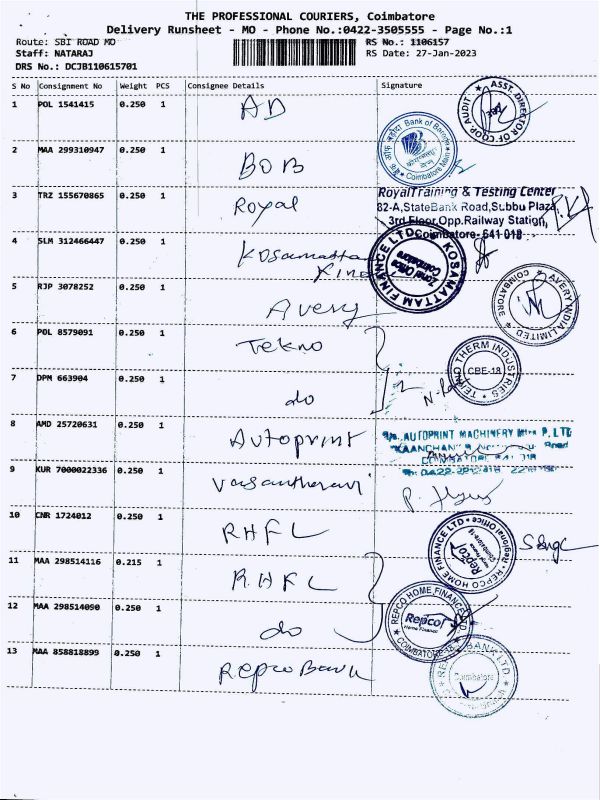 THE PROFESSIONAL COURIERS, Coimbatore
Delivery Runsheet - MO - Phone No.:0422-3505555 - Page No.:1
Route: SBI ROAD MO RS No.: 1106157
Staff: NATARAJ RS Date: 27-Jan-2023
DRS No.: DCJB110615701
S No Consignment No Weight PCS Consignee Details Signature
1 POL 1541415 0.250 1 AD
ASST. DIRECTOR OF COOP. AUDIT
2 MAA 299310947 0.250 1 BOB
Bank of Baroda
Coimbatore Main
3 TRZ 155670865 0.250 1 Royal
Royal Training & Testing Center
82-A, StateBank Road, Subbu Plaza,
3rd Floor, Opp. Railway Station,
Coimbatore- 641 018
4 SLM 312466447 0.250 1 Kosamattam
KOSAMATTAM FINANCE LTD
Zonal Office
Coimbatore
5 RJP 3078252 0.250 1 Avery
AVERY INDIA LIMITED
COIMBATORE
6 POL 8579091 0.250 1 Tekno
TEKNO THERM INDUSTRIES
CBE-18
7 DPM 663904 0.250 1 do
8 AMD 25720631 0.250 1 Autoprint
AUTOPRINT MACHINERY P. LTD
9 KUR 7000022336 0.250 1
10 CNR 1724012 0.250 1 RHFL
REPCO HOME FINANCE LTD
Regional Office
Repco
Coimbatore
11 MAA 298514116 0.215 1 RHFL
12 MAA 298514090 0.250 1 do
REPCO HOME FINANCE LTD
Repco
Home Finance
COIMBATORE
13 MAA 858818899 0.250 1 Repco Bank
REPCO BANK LTD
Coimbatore